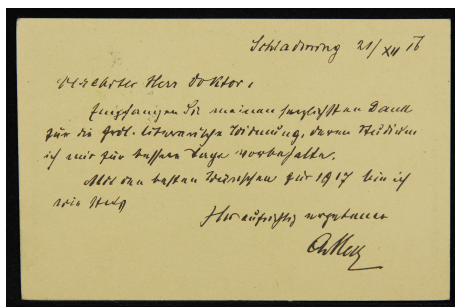 Schladming 21/XII 16
Verehrter Herr Doktor!
Empfangen Sie meinen herzlichsten Dank
für die frdl. literarische Widmung, deren Studium
ich mir für bessere Tage vorbehalte.
Mit den besten Wünschen für 1917 bin ich
wie stets
Ihr aufrichtig ergebener